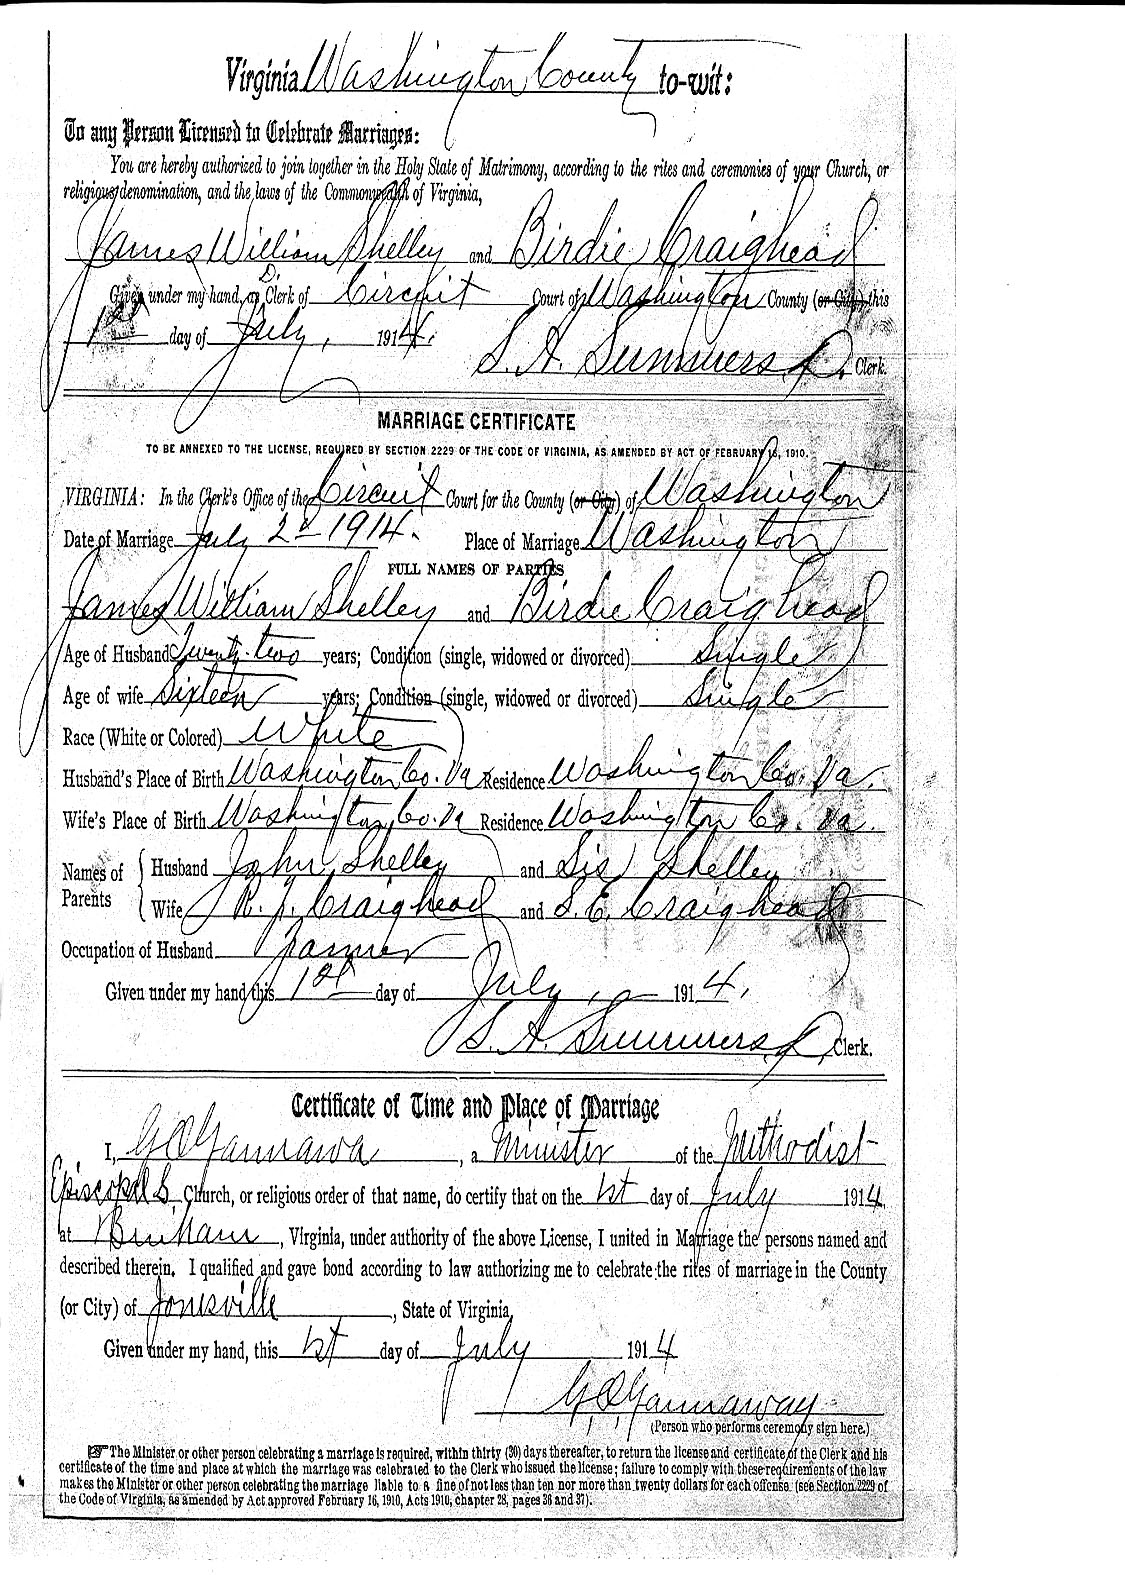 Virginia Washington County to-wit:
To any Person Licensed to Celebrate Marriages:
You are hereby authorized to join together in the Holy State of Matrimony, according to the rites and ceremonies of your Church, or
religious denomination, and the laws of the Commonwealth of Virginia,
James William Shelley and Birdie Craighead
Given under my hand, as D. Clerk of Circuit Court of Washington County (or City) this
1st day of July, 1914.
S. A. Summers, D. Clerk.
MARRIAGE CERTIFICATE
TO BE ANNEXED TO THE LICENSE, REQUIRED BY SECTION 2229 OF THE CODE OF VIRGINIA, AS AMENDED BY ACT OF FEBRUARY 16, 1910.
VIRGINIA: In the Clerk's Office of the Circuit Court for the County (or City) of Washington
Date of Marriage July 2d 1914. Place of Marriage Washington
FULL NAMES OF PARTIES
James William Shelley and Birdie Craighead
Age of Husband Twenty-two years; Condition (single, widowed or divorced) Single
Age of wife Sixteen years; Condition (single, widowed or divorced) Single
Race (White or Colored) White
Husband's Place of Birth Washington Co. Va Residence Washington Co. Va.
Wife's Place of Birth Washington Co. Va Residence Washington Co. Va.
Names of Parents Husband John Shelley and Sis Shelley
Wife R. J. Craighead and S. E. Craighead
Occupation of Husband Farmer
Given under my hand this 1st day of July, 1914.
S. A. Summers, D. Clerk.
Certificate of Time and Place of Marriage
I, Gannaway, a Minister of the Methodist
Episcopal S. Church, or religious order of that name, do certify that on the 1st day of July 1914,
at Benham, Virginia, under authority of the above License, I united in Marriage the persons named and
described therein. I qualified and gave bond according to law authorizing me to celebrate the rites of marriage in the County
(or City) of Jonesville, State of Virginia,
Given under my hand, this 1st day of July 1914
Gannaway
(Person who performs ceremony sign here.)
☞ The Minister or other person celebrating a marriage is required, within thirty (30) days thereafter, to return the license and certificate of the Clerk and his
certificate of the time and place at which the marriage was celebrated to the Clerk who issued the license; failure to comply with these requirements of the law
makes the Minister or other person celebrating the marriage liable to a fine of not less than ten nor more than twenty dollars for each offense. (see Section 2229 of
the Code of Virginia, as amended by Act approved February 16, 1910, Acts 1910, chapter 28, pages 36 and 37).